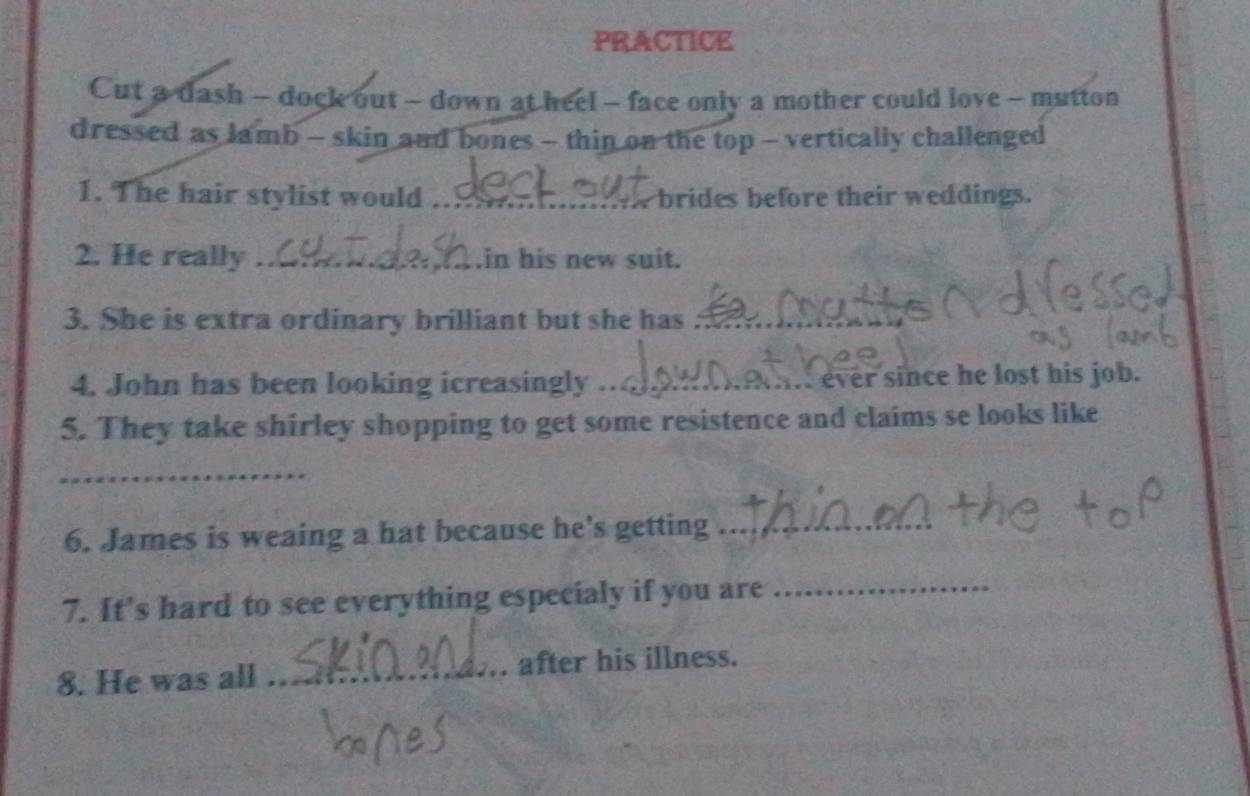 PRACTICE
Cut a dash – dock out – down at heel – face only a mother could love – mutton
dressed as lamb – skin and bones – thin on the top – vertically challenged
1. The hair stylist would .... deck out .... brides before their weddings.
2. He really .... cut dash .... in his new suit.
3. She is extra ordinary brilliant but she has .... mutton dressed
as lamb
4. John has been looking icreasingly .... down at heel .... ever since he lost his job.
5. They take shirley shopping to get some resistence and claims se looks like
......................
6. James is weaing a hat because he's getting .... thin on the top
7. It's hard to see everything especialy if you are ......................
8. He was all .... skin and .... after his illness.
bones